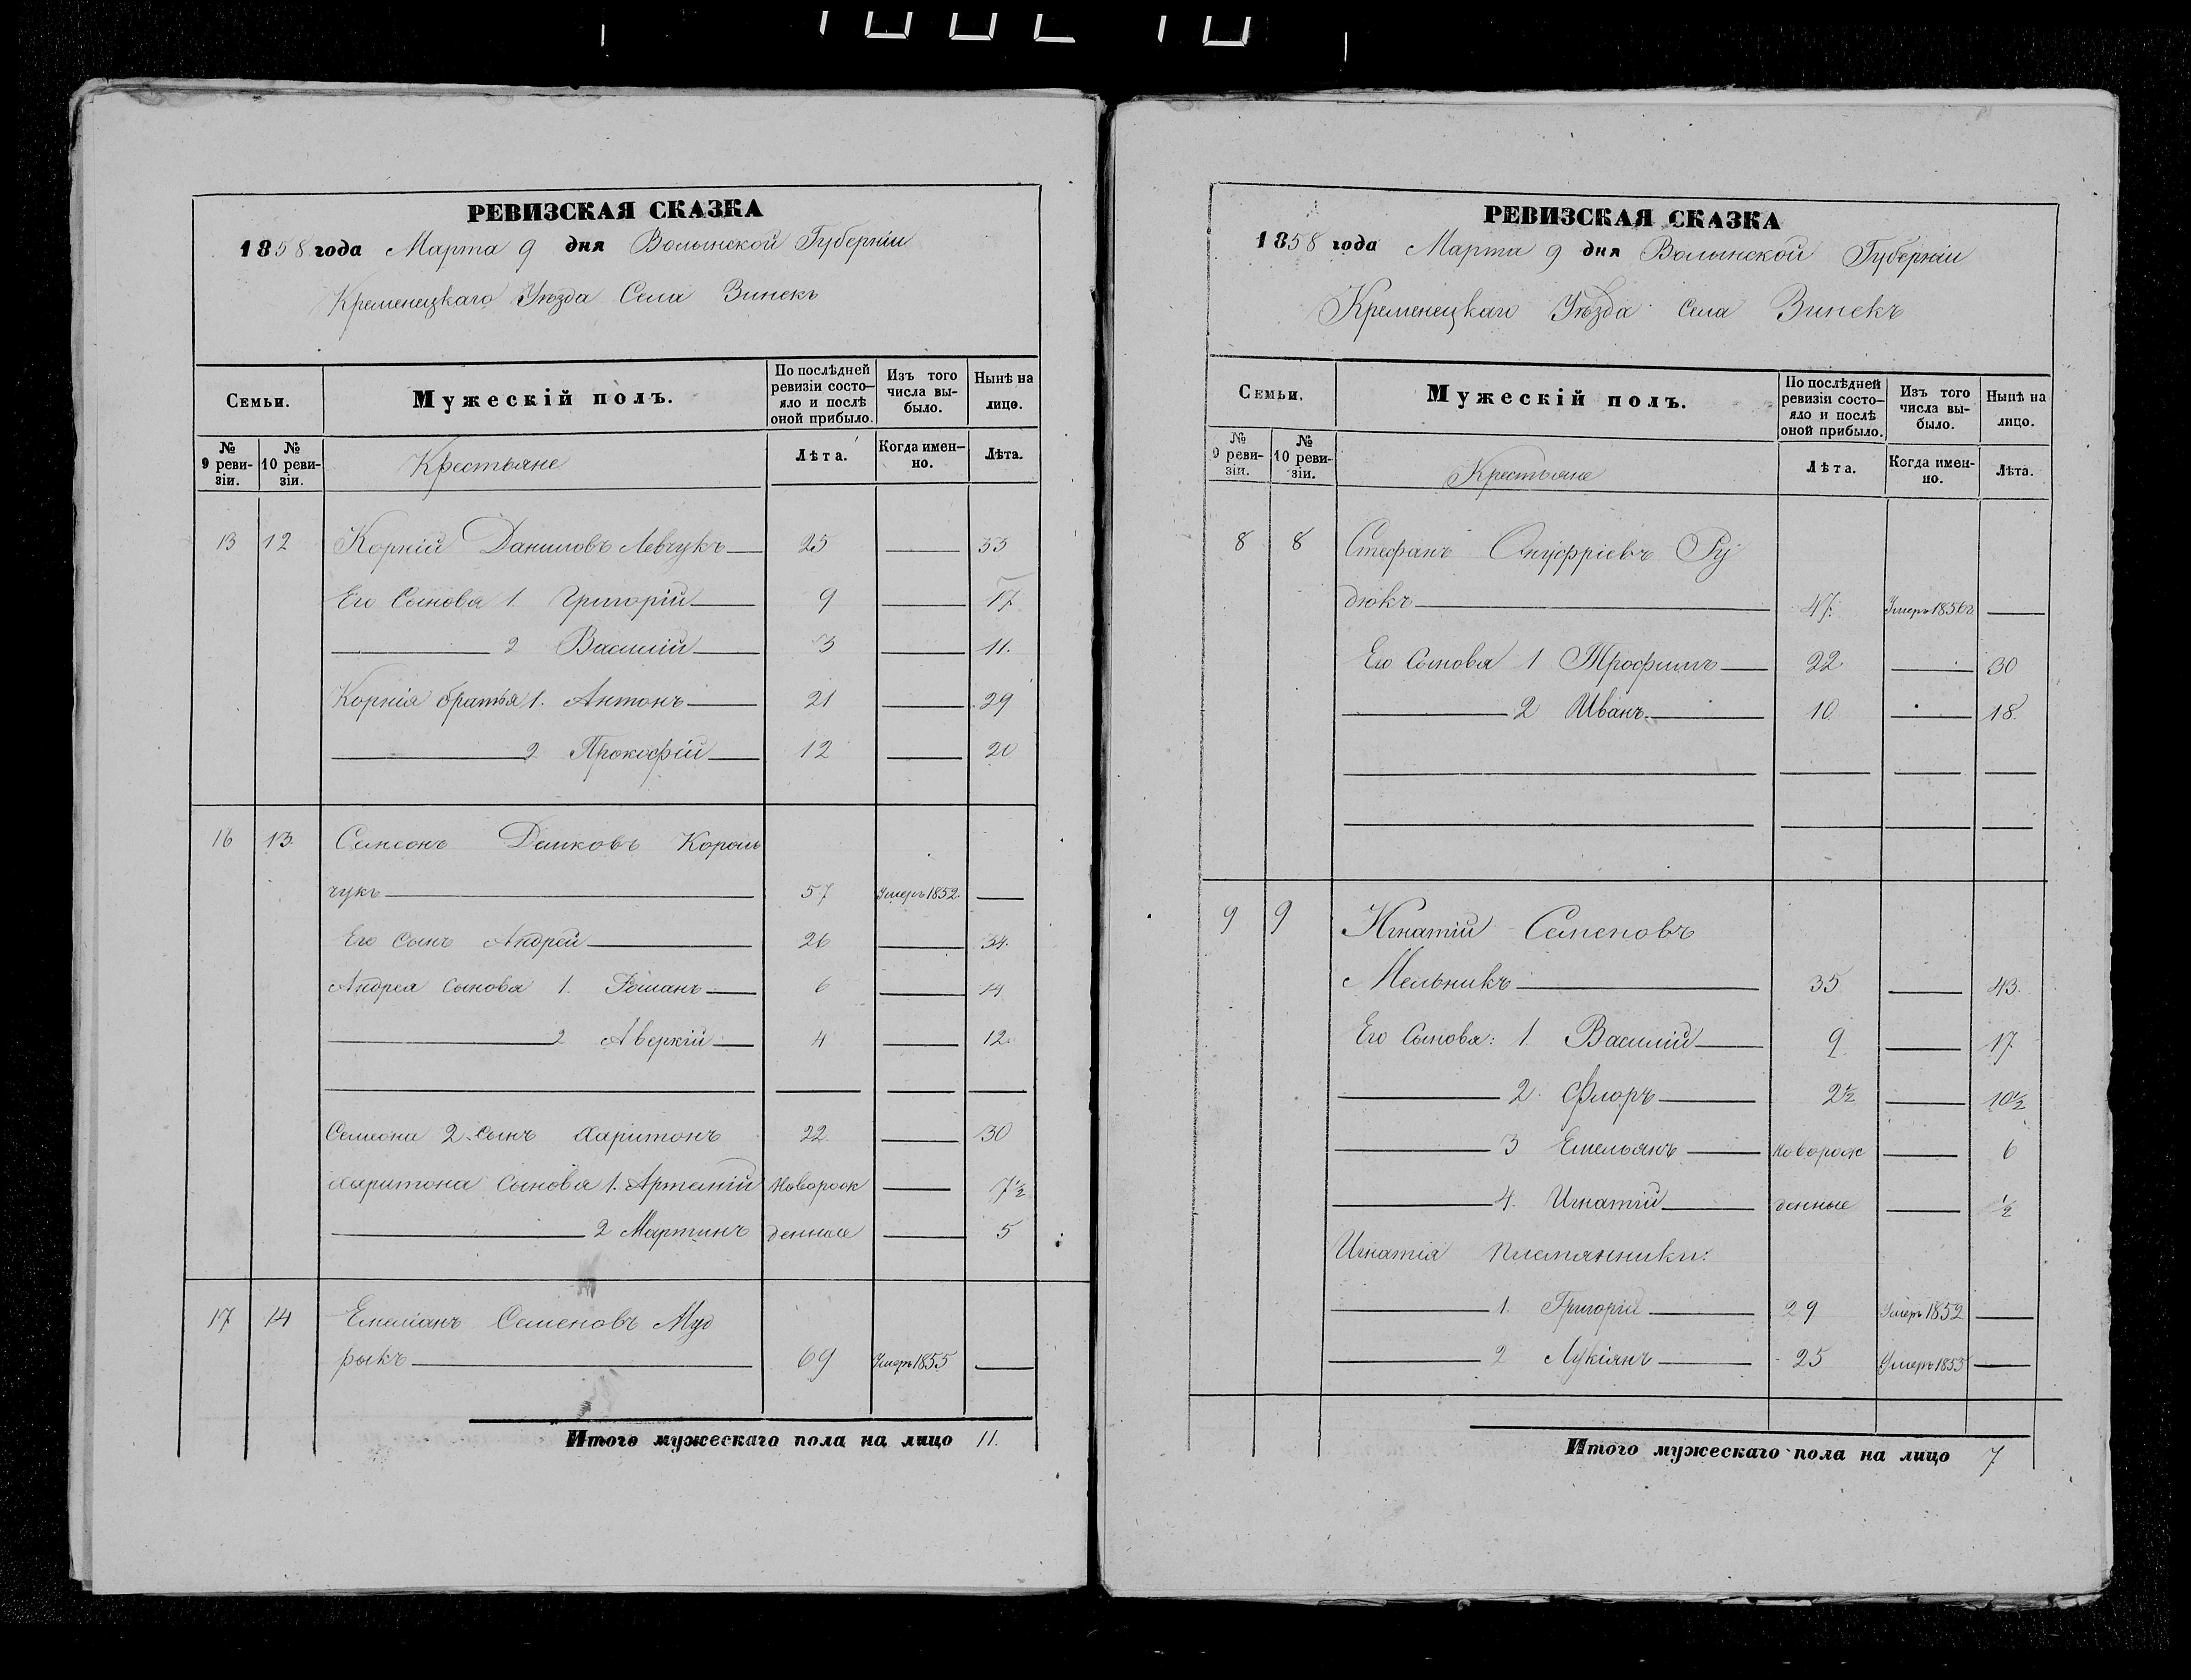 РЕВИЗСКАЯ СКАЗКА
1858 года Марта 9 дня Волынской Губерніи
Кременецкаго Уѣзда Села Зинекъ
Семьи.
Мужескій полъ.
По послѣдней ревизіи состо-
яло и послѣ оной прибыло.
Изъ того числа вы-
было.
Нынѣ на лицо.
№ 9 реви-
зіи.
№ 10 реви-
зіи.
Крестьяне
Лѣта.
Когда имен-
но.
Лѣта.
13 12 Корній Даниловъ Левчукъ 25 33
Его Сынова 1. Григорій 9 17
2 Василій 3 11.
Корнія братья 1. Антонъ 21 29
2 Прокофій 12 20
16 13. Семеонъ Король
чукъ 57 Умеръ 1852.
Его Сынъ Андрей 26 34.
Андрея сынова 1. Романъ 6 14
2 Аверкій 4 12.
Семеона 2. Сынъ Харитонъ 22. 30
Харитона Сынова 1. Артемій Новорож 7½
2 Мартинъ денные 5
17 14 Емеліанъ Семеновъ Муд
рыкъ 69 Умеръ 1855
Итого мужескаго пола на лицо 11.
РЕВИЗСКАЯ СКАЗКА
1858 года Марта 9 дня Волынской Губерніи
Кременецкаго Уѣзда Села Зинекъ
Семьи.
Мужескій полъ.
По послѣдней ревизіи состо-
яло и послѣ оной прибыло.
Изъ того числа вы-
было.
Нынѣ на лицо.
№ 9 реви-
зіи.
№ 10 реви-
зіи.
Крестьяне
Лѣта.
Когда имен-
но.
Лѣта.
8 8 Стефанъ Онуфріевъ Ру
дюкъ 47. Умеръ 1856г
Его Сынова 1 Трофимъ 22 30
2 Иванъ 10 18.
9 9 Игнатій Семеновъ
Мельникъ 35 43.
Его Сынова: 1. Василій 9 17
2. Флоръ 2½ 10½
3 Емельянъ Новорож 6
4. Игнатій денные ½
Игнатія племянники:
1. Григорій 29 Умеръ 1852
2 Лукіянъ 25 Умеръ 1855
Итого мужескаго пола на лицо 7